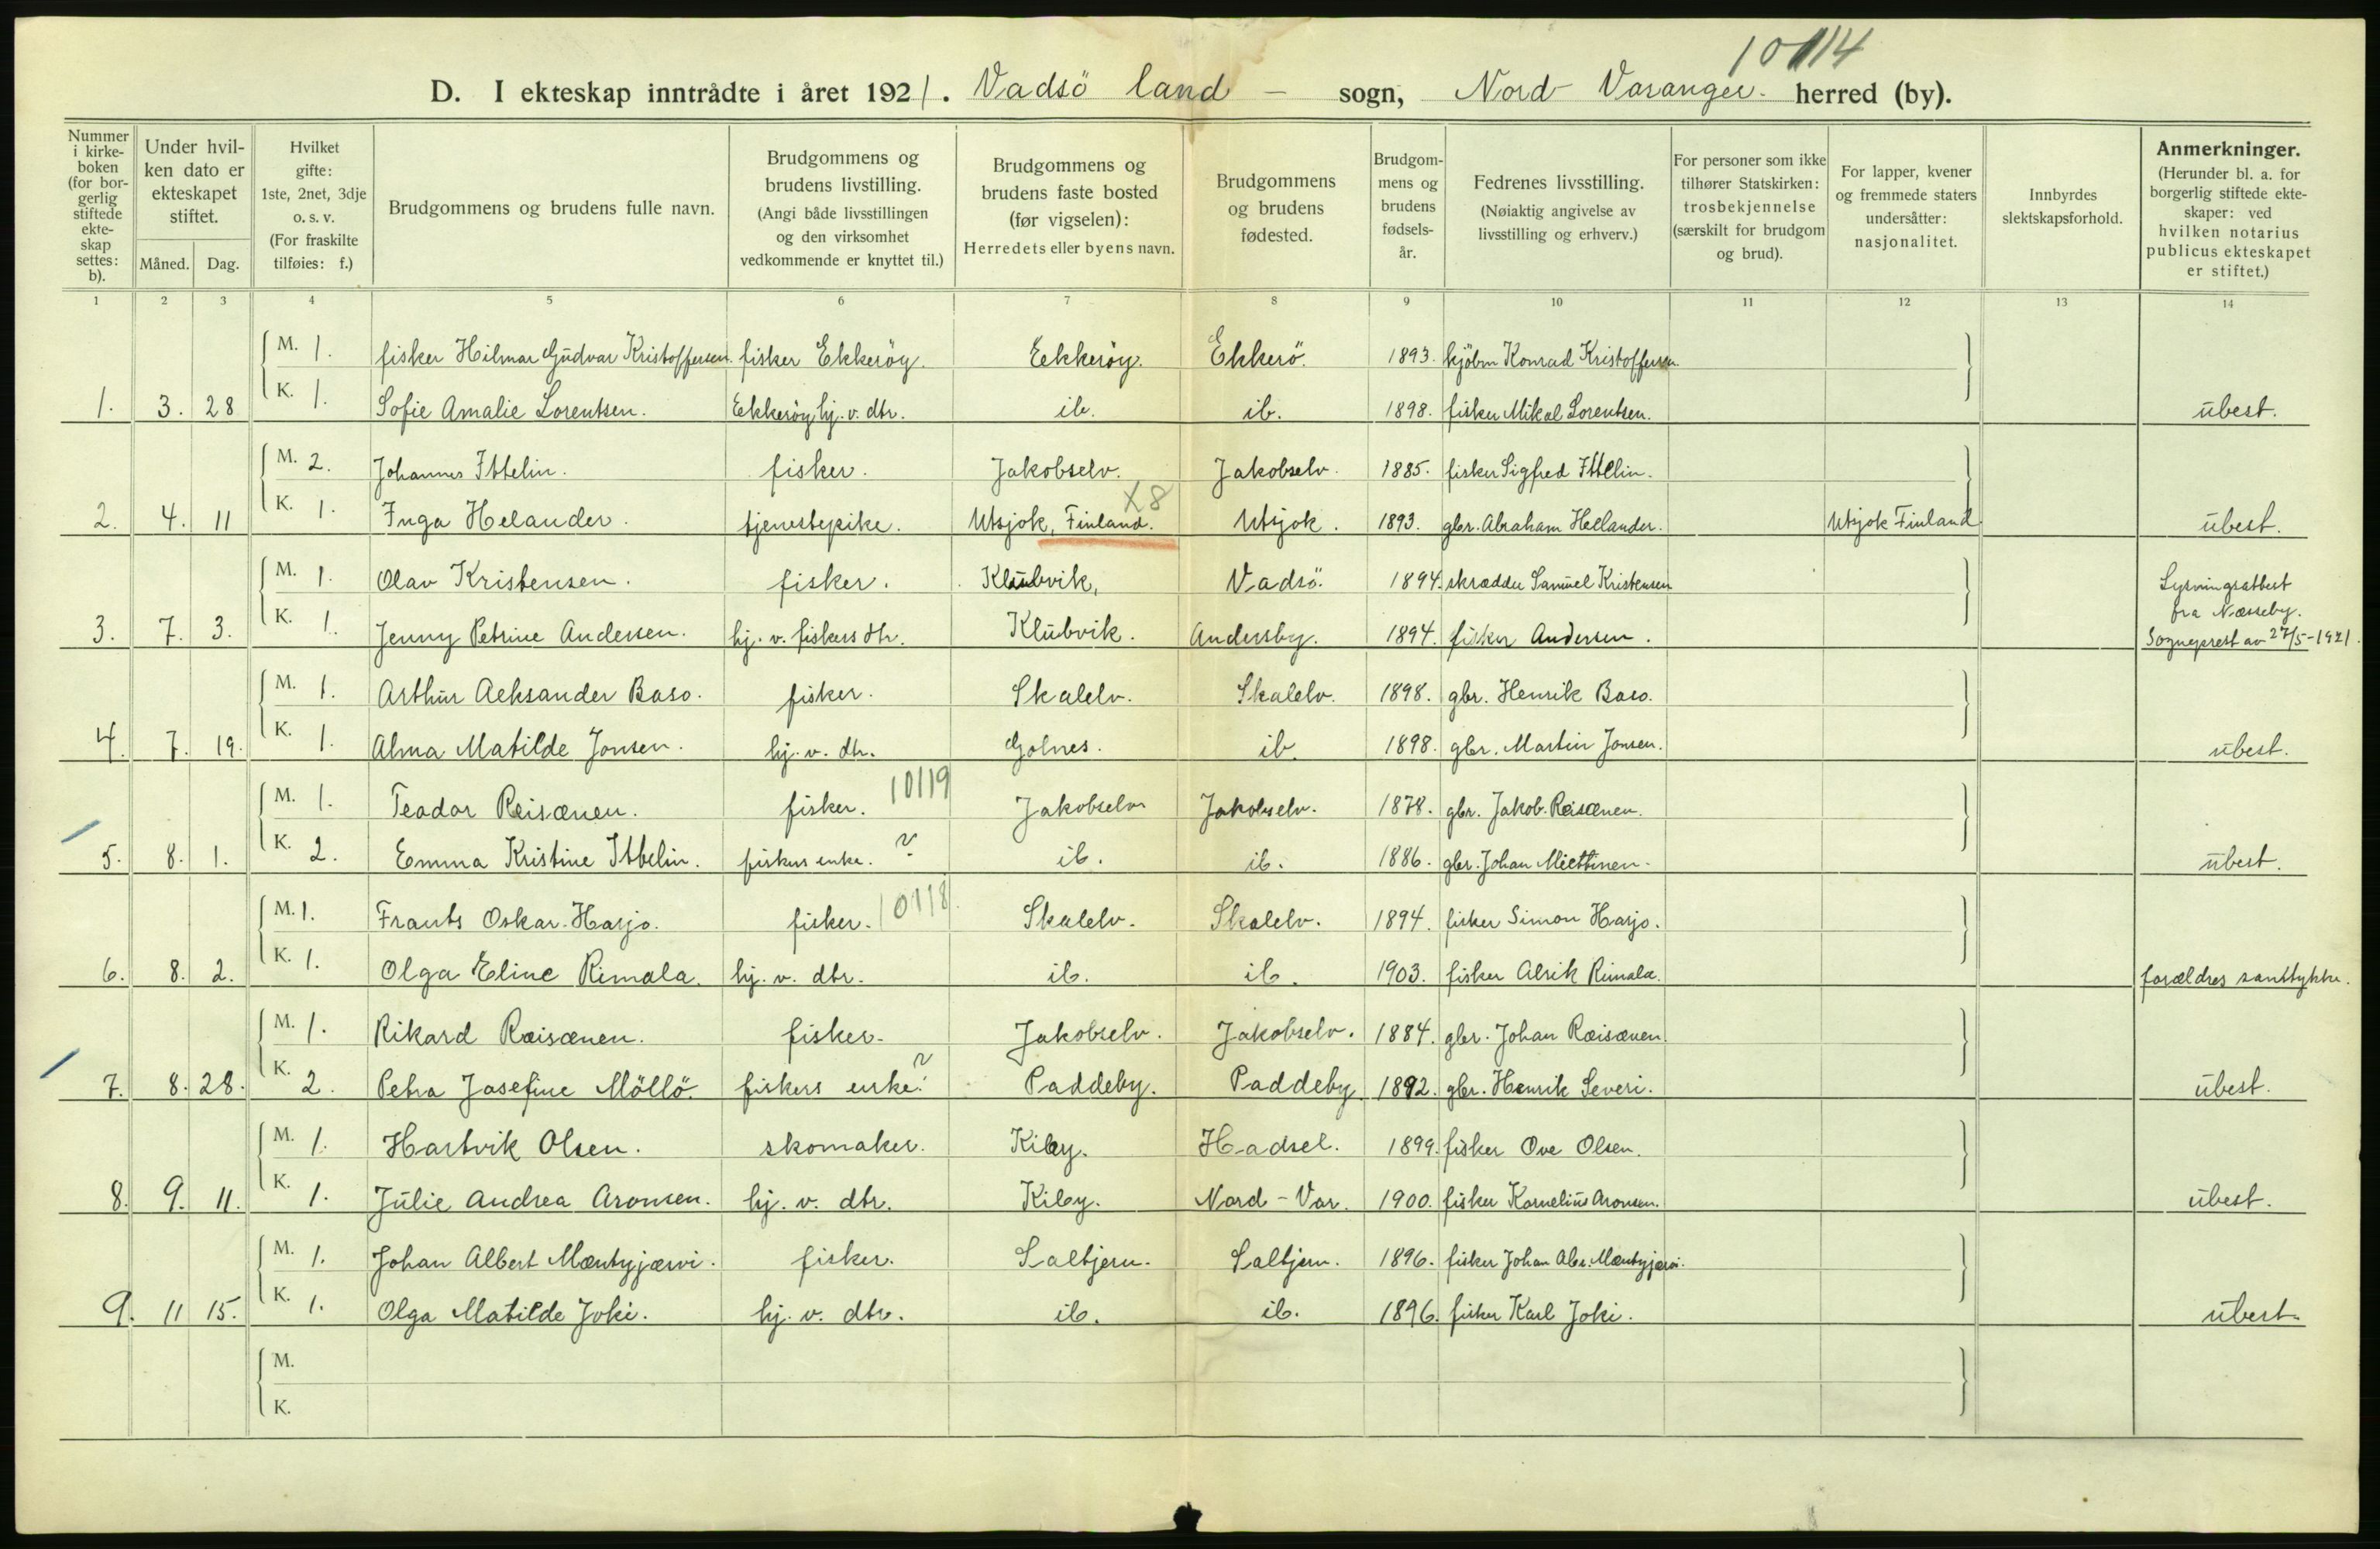 10114
D. I ekteskap inntrådte i året 1921. Vadsö land – sogn, Nord-Varanger. herred (by).
Nummer i kirkeboken (for borgerlig stiftede ekteskap settes: b).
Under hvilken dato er ekteskapet stiftet.
Måned. Dag.
Hvilket gifte: 1ste, 2net, 3dje o. s. v. (For fraskilte tilføies: f.)
Brudgommens og brudens fulle navn.
Brudgommens og brudens livstilling. (Angi både livsstillingen og den virksomhet vedkommende er knyttet til.)
Brudgommens og brudens faste bosted (før vigselen): Herredets eller byens navn.
Brudgommens og brudens fødested.
Brudgommens og brudens fødselsår.
Fedrenes livsstilling. (Nøiaktig angivelse av livsstilling og erhverv.)
For personer som ikke tilhører Statskirken: trosbekjennelse (særskilt for brudgom og brud).
For lapper, kvener og fremmede staters undersåtter: nasjonalitet.
Innbyrdes slektskapsforhold.
Anmerkninger. (Herunder bl. a. for borgerlig stiftede ekteskaper: ved hvilken notarius publicus ekteskapet er stiftet.)
1 2 3 4 5 6 7 8 9 10 11 12 13 14
M. 1. fisker Hilmar Gudvar Kristoffersen. fisker Ekkeröy. Eekkeröy. Ekkerö. 1893. kjöbm Konrad Kristoffersen
1. 3. 28 K. 1. Sofie Amalie Lorentsen. Ekkeröy hj. v. dtr. ib. ib. 1898. fisker Mikal Lorentsen. ubest.
M. 2. Johannes Ittelin. fisker. Jakobselv. Jakobselv. 1885. fisker Sigfred Ittelin.
X8
2. 4. 11 K. 1. Inga Helander. tjenestepike. Utsjok, Finland. Utsjok. 1893. gbr. Abraham Helander. Utsjok Finland ubest.
M. 1. Olav Kristensen. fisker. Klubvik, Vadsö. 1894. skrædder Samuel Kristensen Lysningsattest
fra Næsseby.
3. 7. 3. K. 1. Jenny Petrine Andersen. hj. v. fiskers dtr. Klubvik. Andersby. 1894. fisker Andersen. Sogneprest av 27/5-1921.
M. 1. Arthur Aeksander Baso. fisker. Skalelv. Skalelv. 1898. gbr. Henrik Baso.
4. 7. 19. K. 1. Alma Matilde Jonsen. hj. v. dtr. Golnes. ib. 1898. gbr. Martin Jonsen. ubest.
M. 1. Teador Reisænen. fisker. 10119 Jakobselv Jakobselv. 1878. gbr. Jakob Reisænen.
5. 8. 1. K. 2. Emma Kristine Ittelin. fiskers enke. ? ib. ib. 1886. gbr. Johan Miettinen. ubest.
M. 1. Frants Oskar Harjo. fisker. 10118. Skalelv. Skalelv. 1894. fisker Simon Harjo.
6. 8. 2. K. 1. Olga Eline Rimala. hj. v. dtr. ib. ib. 1903. fisker Alrik Rimala. forældres samtykke.
M. 1. Rikard Ræisænen. fisker. Jakobselv. Jakobselv. 1884. gbr. Johan Ræisænen.
7. 8. 28. K. 2. Petra Josefine Möllö. fiskers enke. ? Paddeby. Paddeby 1892. gbr. Henrik Severi. ubest.
M. 1. Hartvik Olsen. skomaker. Kiby. Hadsel. 1899. fisker Ove Olsen.
8. 9. 11. K. 1. Julie Andrea Aronsen. hj. v. dtr. Kiby. Nord-Var. 1900. fisker Kornelius Aronsen. ubest.
M. 1. Johan Albert Mæntyjærvi. fisker. Saltjern. Saltjern. 1896. fisker Johan Abr. Mæntyjærvi.
9. 11 15. K. 1. Olga Matilde Joki. hj. v. dtr. ib. ib. 1896. fisker Karl Joki. ubest.
M.
K.